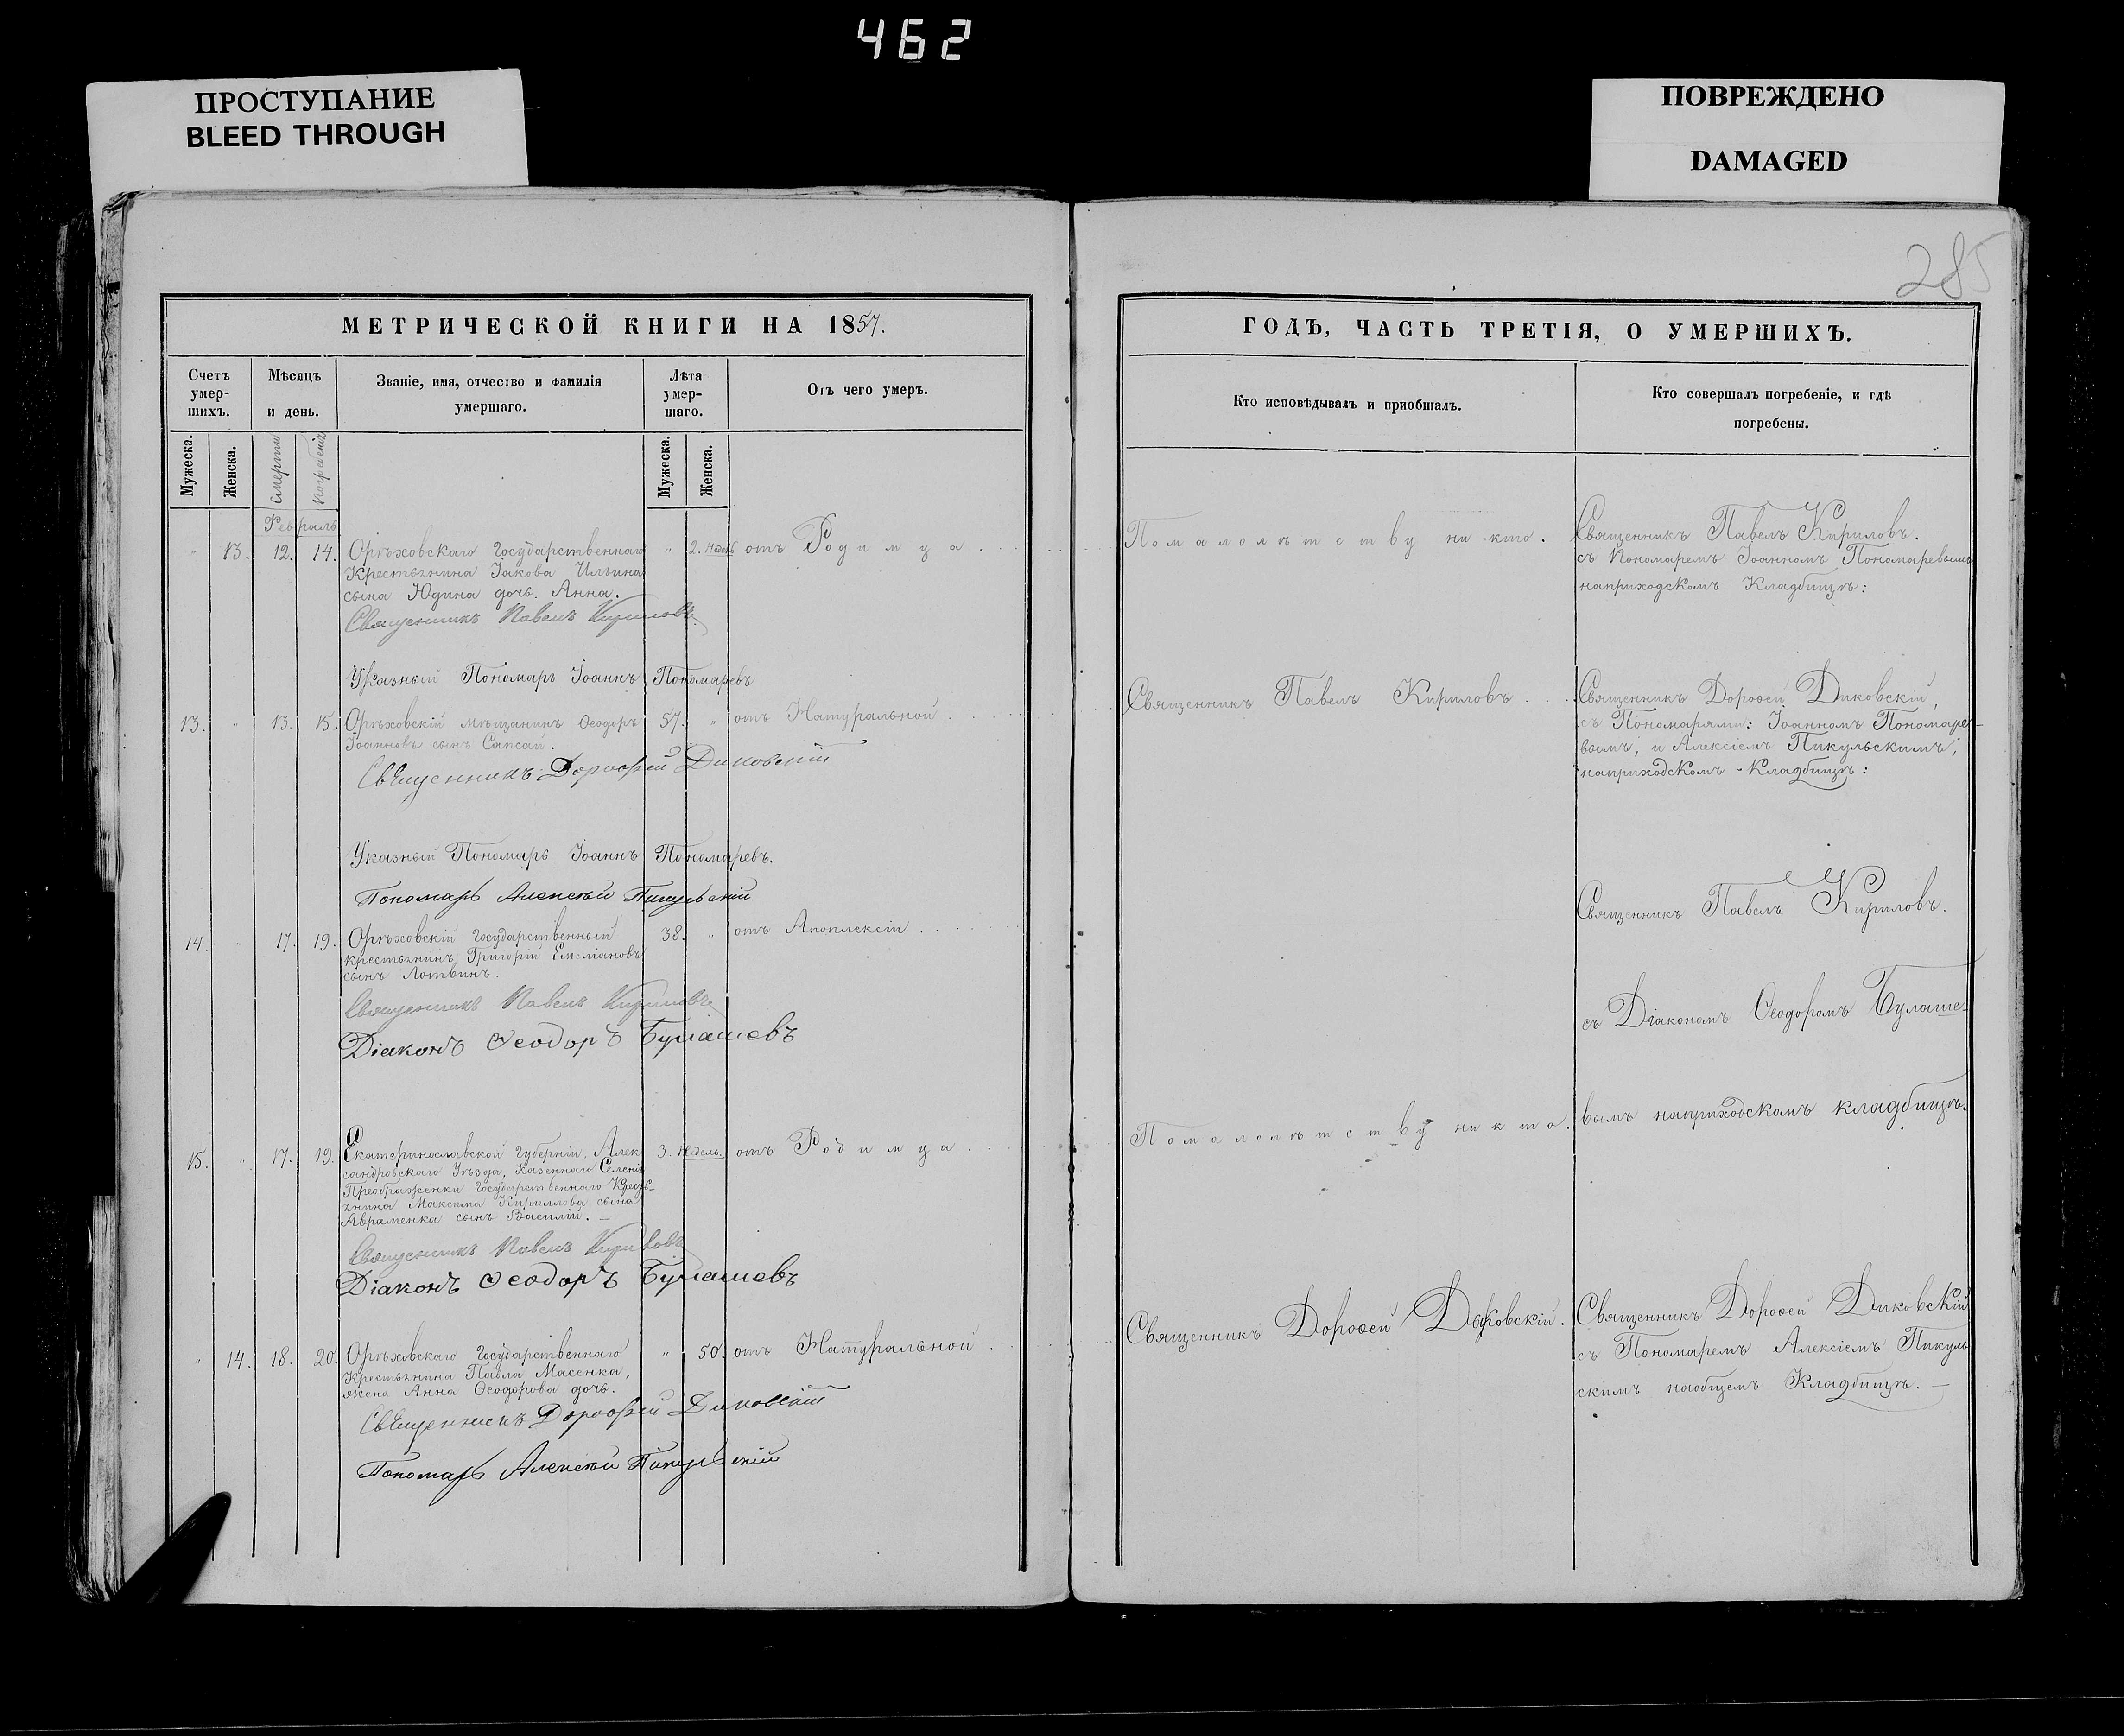 462
ПРОСТУПАНИЕ
BLEED THROUGH
ПОВРЕЖДЕНО
DAMAGED
285
МЕТРИЧЕСКОЙ КНИГИ НА 1857.
Счетъ умер-шихъ.
Мѣсяцъ и день.
Званіе, имя, отчество и фамилія умершаго.
Лѣта умер-шаго.
Отъ чего умеръ.
Мужеска.
Женска.
Смерти
Погребенія
Мужеска.
Женска.
Февраль
" 13. 12. 14. Орѣховскаго Государственнаго " 2. недѣл отъ Родимца
Крестьянина Іакова Ильина
сына Юдина дочь. Анна.
Священникъ Павелъ Кириловъ
Указный Пономарь Іоаннъ Пономаревъ
13. " 13. 15. Орѣховскій мѣщанинъ Ѳеодоръ 57. " отъ Натуральной
Іоанновъ сынъ Сапсай.
Священникъ Дороѳей Диковскій
Указный Пономарь Іоаннъ Пономаревъ.
Пономарь Алексѣй Пикульскій
14. " 17. 19. Орѣховскій Государственный 38. " отъ Апоплексіи
крестьянинъ Григорій Емеліановъ
сынъ Лотвинъ.
Священникъ Павелъ Кириловъ
Діаконъ Ѳеодоръ Булашевъ
15. " 17. 19. Екатеринославской Губерніи, Алек 3. недѣль. отъ Родимца
сандровскаго Уѣзда, Казеннаго Селенія
Преображенки Государственнаго Кресть-
янина Максима Кириллова сына
Авраменка сынъ Василій. —
Священникъ Павелъ Кириловъ
Діаконъ Ѳеодоръ Булашевъ
" 14. 18. 20. Орѣховскаго Государственнаго " 50. отъ Натуральной
Крестьянина Павла Масенка,
жена Анна Ѳеодорова дочь.
Священникъ Дороѳей Диковскій
Пономарь Алексѣй Пикульскій
ГОДЪ, ЧАСТЬ ТРЕТІЯ, О УМЕРШИХЪ.
Кто исповѣдывалъ и приобщалъ.
Кто совершалъ погребеніе, и гдѣ погребены.
Помалолѣтству никто.
Священникъ Павелъ Кириловъ.
съ Пономаремъ Іоанномъ Пономаревымъ
наприходскомъ Кладбищѣ:
Священникъ Павелъ Кириловъ
Священникъ Дороѳей Диковскій,
съ Пономарями: Іоанномъ Пономаре-
вымъ, и Алексіемъ Пикульскимъ,
наприходскомъ Кладбищѣ:
Священникъ Павелъ Кириловъ.
съ Діакономъ Ѳеодоромъ Булаше-
Помалолѣтству никто.
вымъ наприходскомъ кладбищѣ.
Священникъ Дороѳей Диковскій.
Священникъ Дороѳей Диковскій
съ Пономаремъ Алексіемъ Пикуль
скимъ наобщемъ Кладбищѣ. —